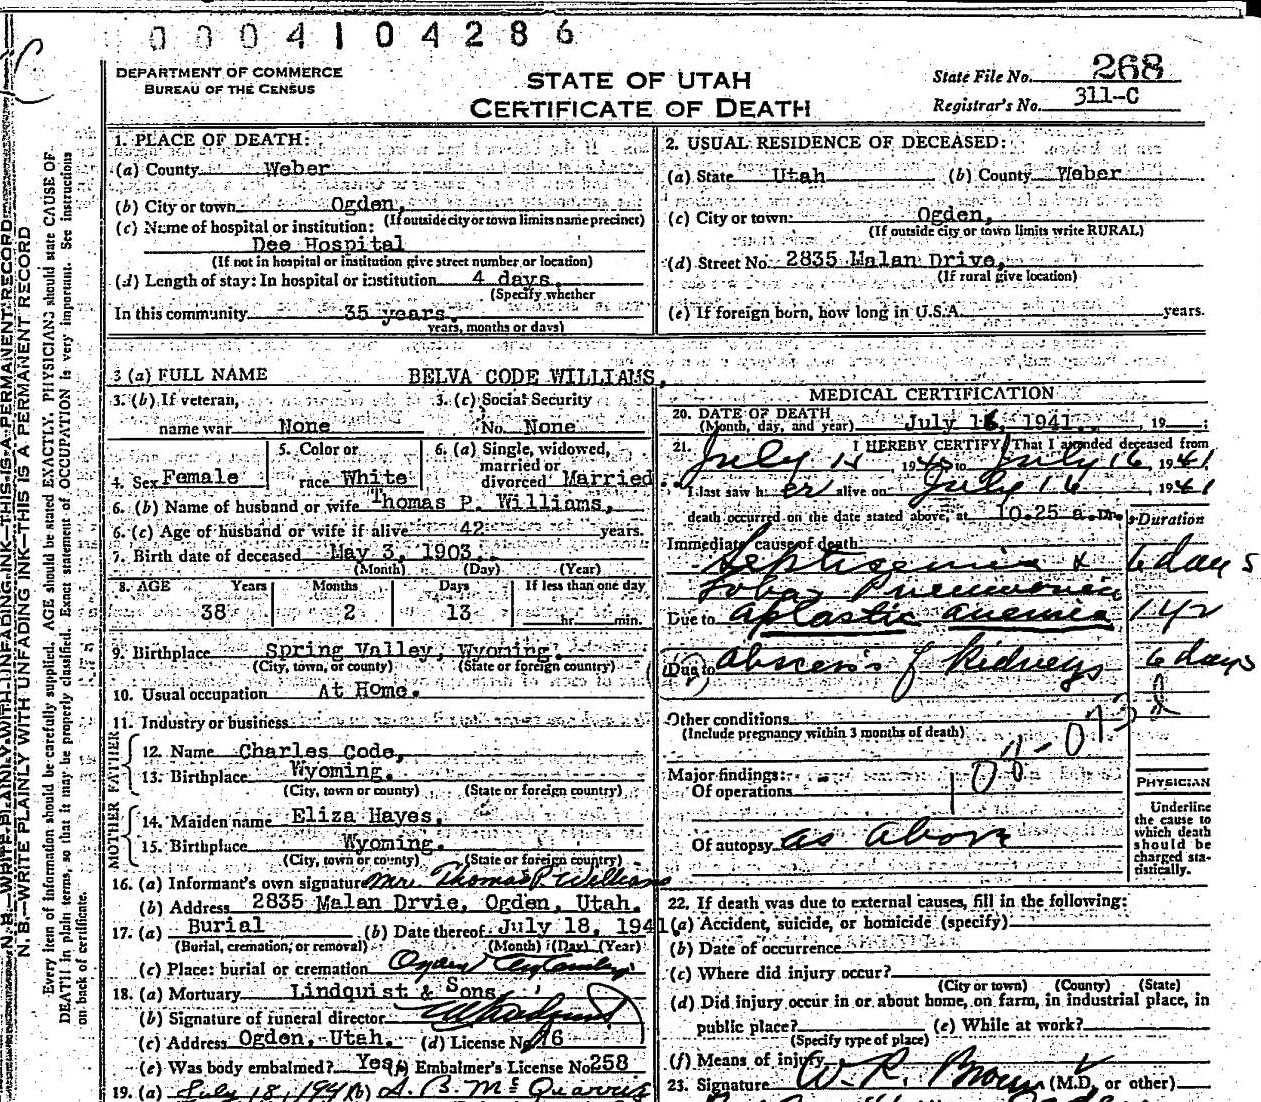 0004104286
DEPARTMENT OF COMMERCE
BUREAU OF THE CENSUS
STATE OF UTAH
CERTIFICATE OF DEATH
State File No. 268
Registrar's No. 311-C
N. B.—WRITE PLAINLY WITH UNFADING INK—THIS IS A PERMANENT RECORD
N. B.—WRITE PLAINLY WITH UNFADING INK—THIS IS A PERMANENT RECORD
Every item of information should be carefully supplied. AGE should be stated EXACTLY. PHYSICIANS should state CAUSE OF
DEATH in plain terms, so that it may be properly classified. Exact statement of OCCUPATION is very important. See instructions
on back of certificate.
1. PLACE OF DEATH:
(a) County Weber
(b) City or town Ogden,
(If outside city or town limits name precinct)
(c) Name of hospital or institution:
Dee Hospital
(If not in hospital or institution give street number or location)
(d) Length of stay: In hospital or institution 4 days.
(Specify whether
In this community 35 years.
years, months or days)
2. USUAL RESIDENCE OF DECEASED:
(a) State Utah (b) County Weber
(c) City or town: Ogden,
(If outside city or town limits write RURAL)
(d) Street No. 2835 Malan Drive,
(If rural give location)
(e) If foreign born, how long in U.S.A. years.
3 (a) FULL NAME BELVA CODE WILLIAMS,
3. (b) If veteran, 3. (c) Social Security
name war None No. None
4. Sex Female 5. Color or race White 6. (a) Single, widowed, married or divorced Married
6. (b) Name of husband or wife Thomas P. Williams,
6. (c) Age of husband or wife if alive 42 years.
7. Birth date of deceased May 3, 1903.
(Month) (Day) (Year)
8. AGE Years Months Days If less than one day
38 2 13 hr. min.
9. Birthplace Spring Valley, Wyoming.
(City, town, or county) (State or foreign country)
10. Usual occupation At Home.
11. Industry or business
FATHER
12. Name Charles Code,
13. Birthplace Wyoming.
(City, town or county) (State or foreign country)
MOTHER
14. Maiden name Eliza Hayes,
15. Birthplace Wyoming.
(City, town or county) (State or foreign country)
16. (a) Informant's own signature Mr. Thomas P. Williams
(b) Address 2835 Malan Drvie, Ogden, Utah.
17. (a) Burial (b) Date thereof July 18, 1941
(Burial, cremation, or removal) (Month) (Day) (Year)
(c) Place: burial or cremation Ogden City
18. (a) Mortuary Lindquist & Sons
(b) Signature of funeral director
(c) Address Ogden, Utah. (d) License No. 16
(e) Was body embalmed? Yes (f) Embalmer's License No. 258
19. (a) July 18, 1941 (b)
MEDICAL CERTIFICATION
20. DATE OF DEATH
(Month, day, and year) July 16, 1941. , 19 ;
21. I HEREBY CERTIFY, That I attended deceased from
July 19 to July 16, 1941
I last saw her alive on July 16, 1941
death occurred on the date stated above, at 10.25 a.m.
Duration
Immediate cause of death
Septicemia & 6 days
Lobar Pneumonia
Due to aplastic anemia 1 yr
Due to abscess of kidneys 6 days
Other conditions
(Include pregnancy within 3 months of death)
Major findings:
Of operations
Of autopsy as above
PHYSICIAN
Underline
the cause to
which death
should be
charged sta-
tistically.
22. If death was due to external causes, fill in the following:
(a) Accident, suicide, or homicide (specify)
(b) Date of occurrence
(c) Where did injury occur?
(City or town) (County) (State)
(d) Did injury occur in or about home, on farm, in industrial place, in
public place? (e) While at work?
(Specify type of place)
(f) Means of injury
23. Signature W. R. Brown (M.D. or other)